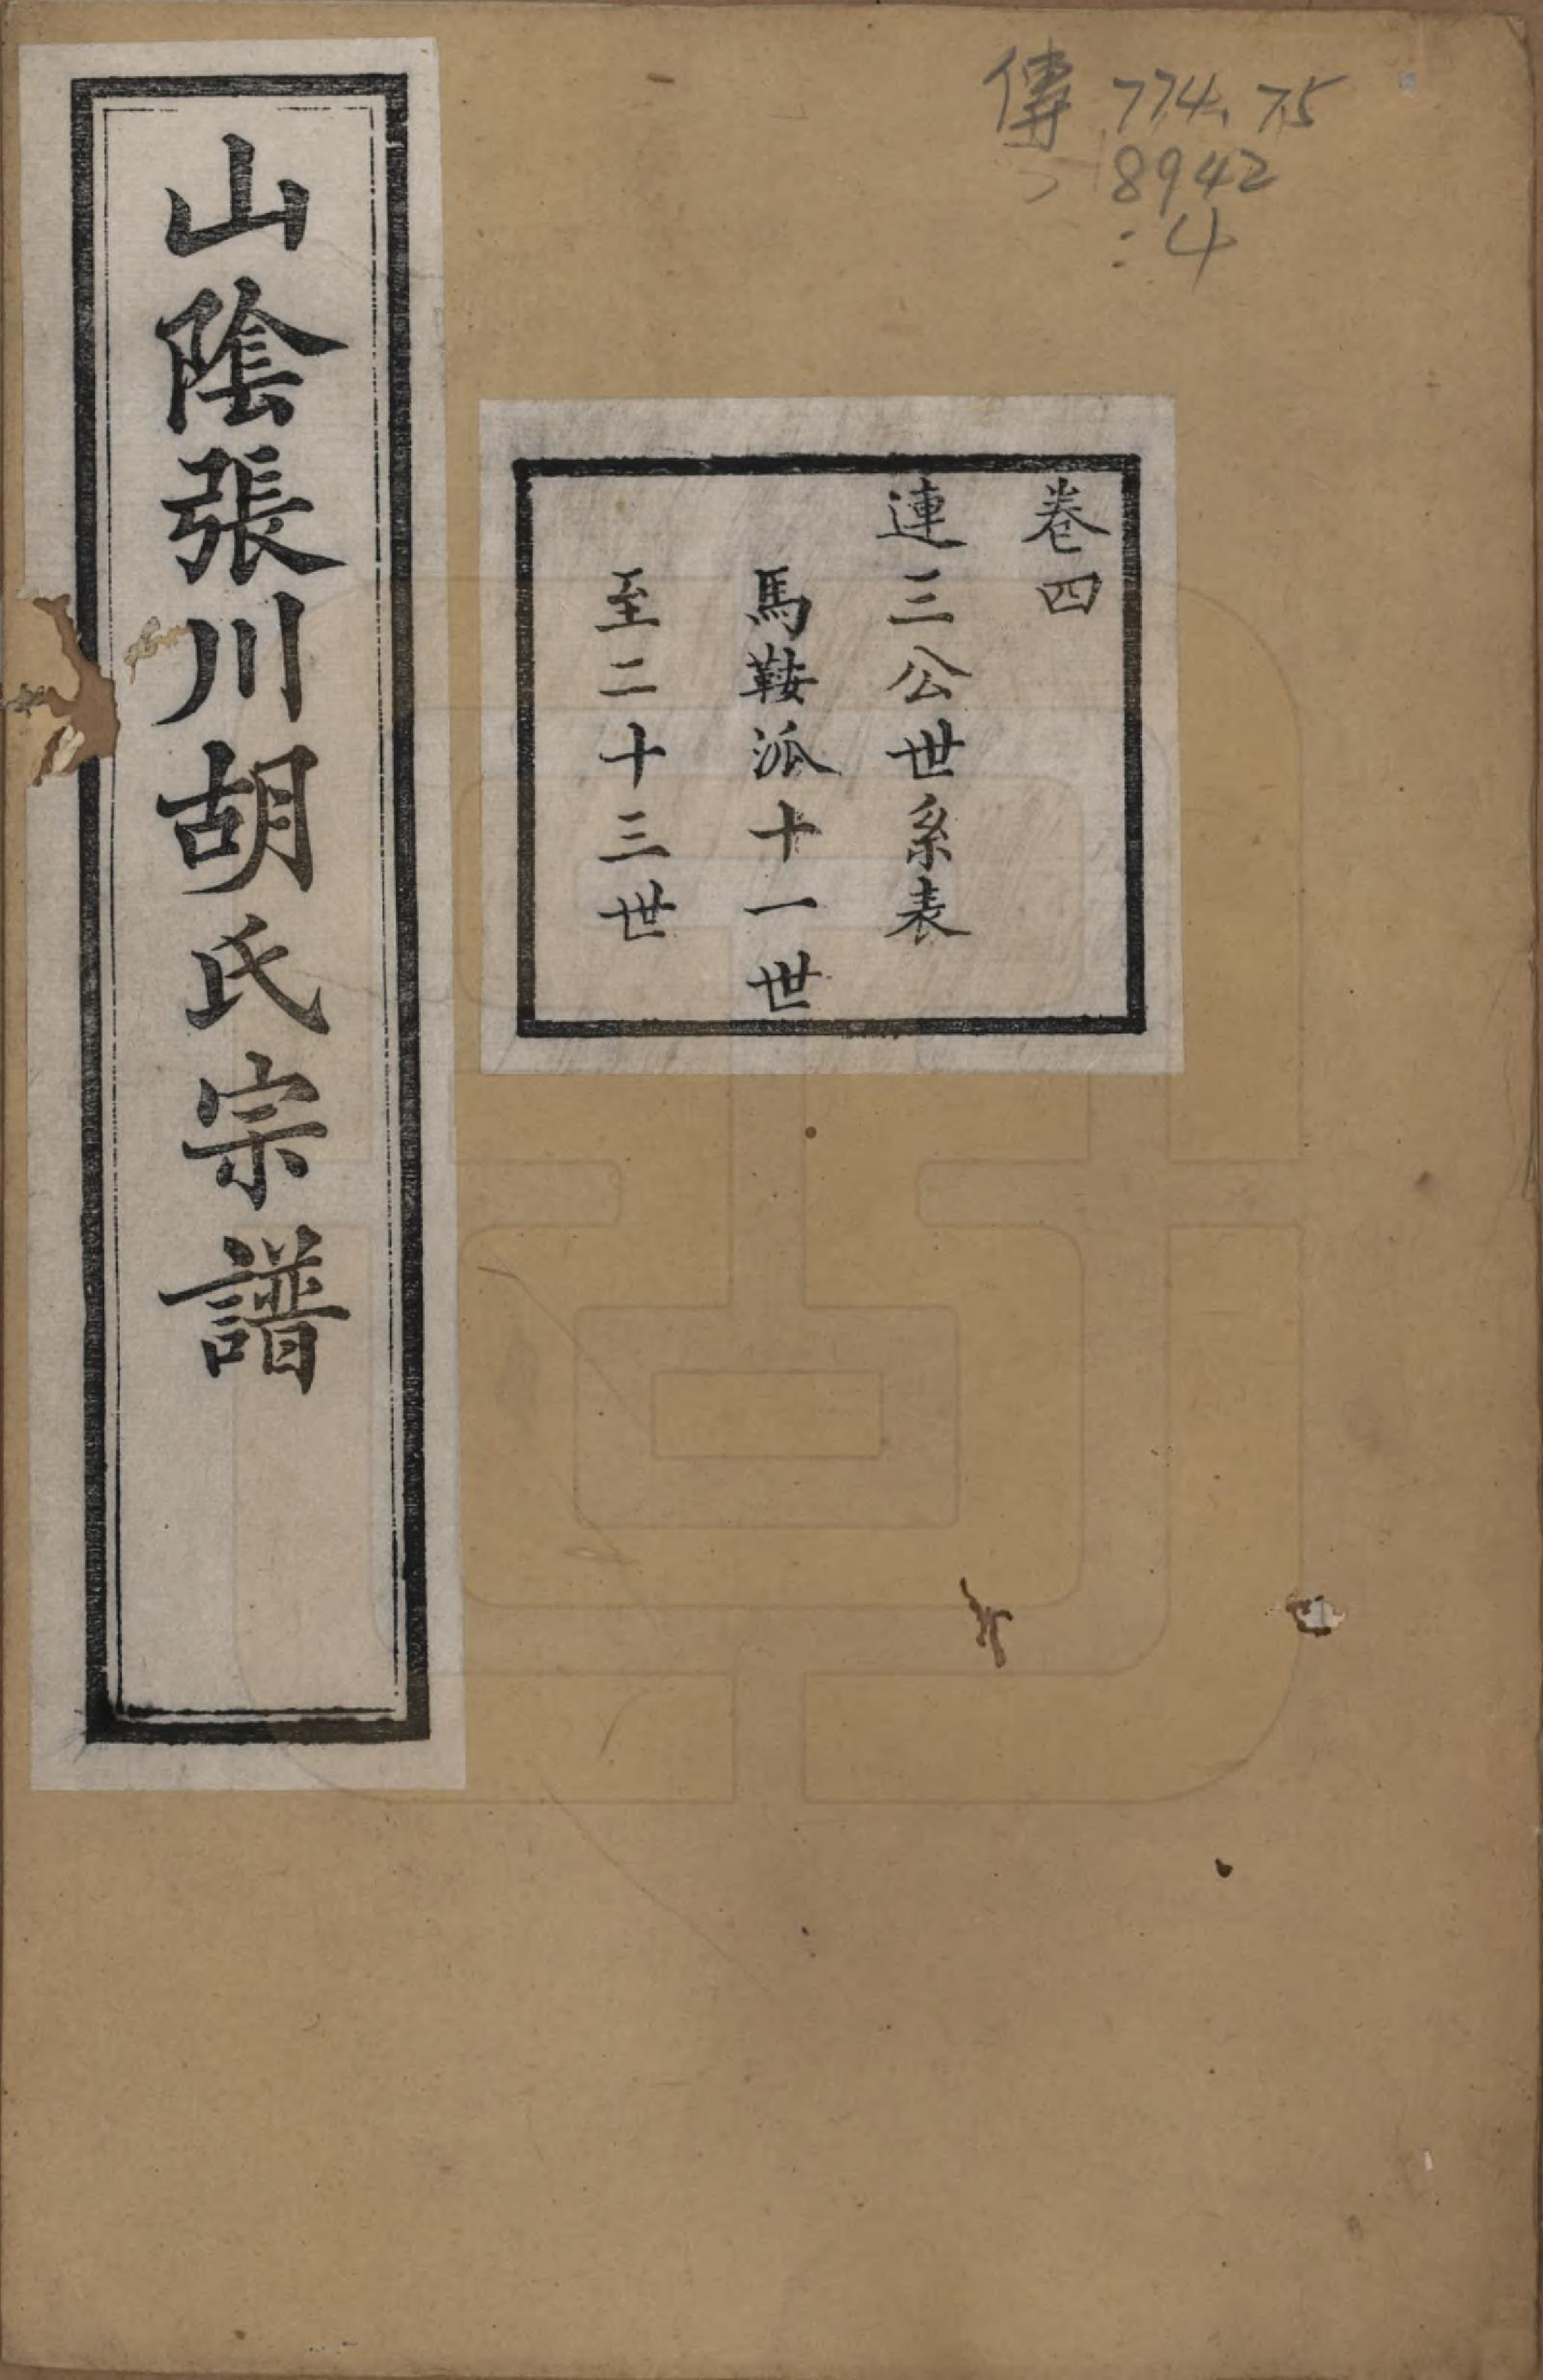 山陰張川胡氏宗譜
卷四
連三公世系表
馬鞍派十一世
至二十三世
傳 774.75
8942
:4